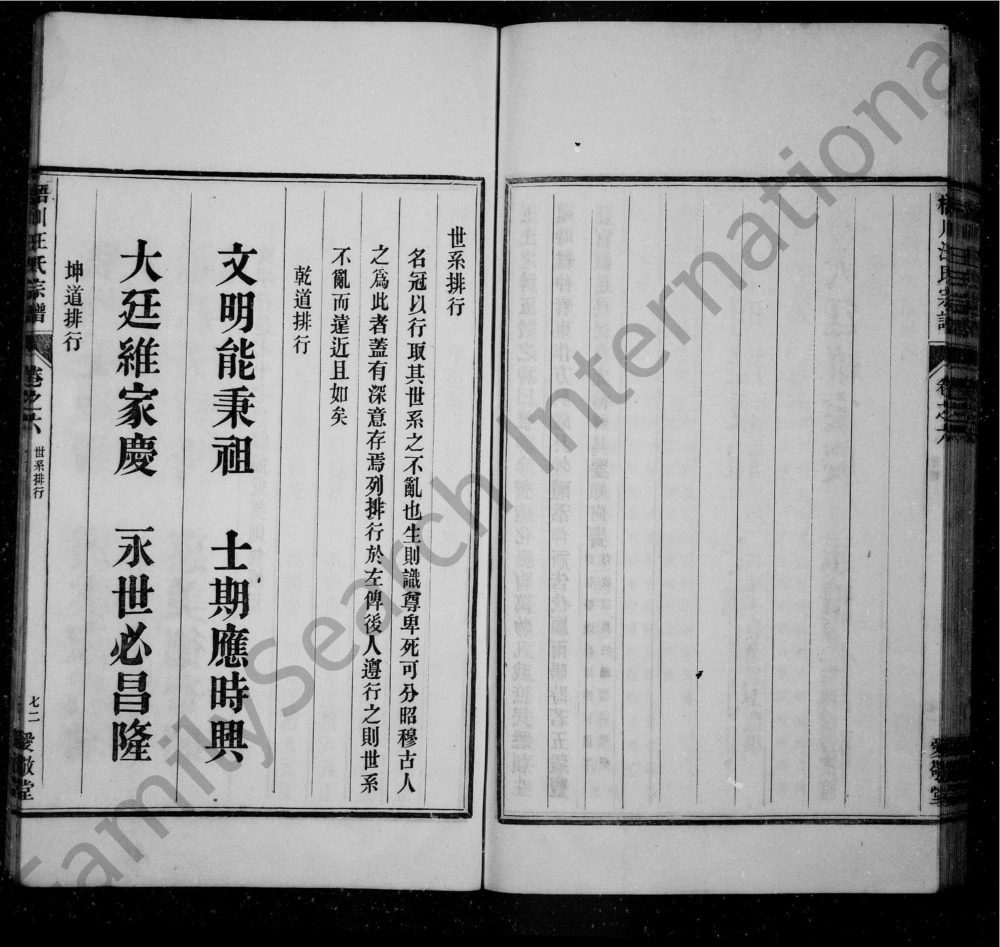 世系排行
名冠以行取其世系之不亂也生則識尊卑死可分昭穆古人
之為此者蓋有深意存焉列排行於左俾後人遵行之則世系
不亂而遠近且如矣
乾道排行
文明能秉祖 士期應時興
大廷維家慶 永世必昌隆
坤道排行
川汪氏宗譜 卷之六 世系排行 七二 愛敬堂
川汪氏宗譜 卷之六 愛敬堂
FamilySearch International